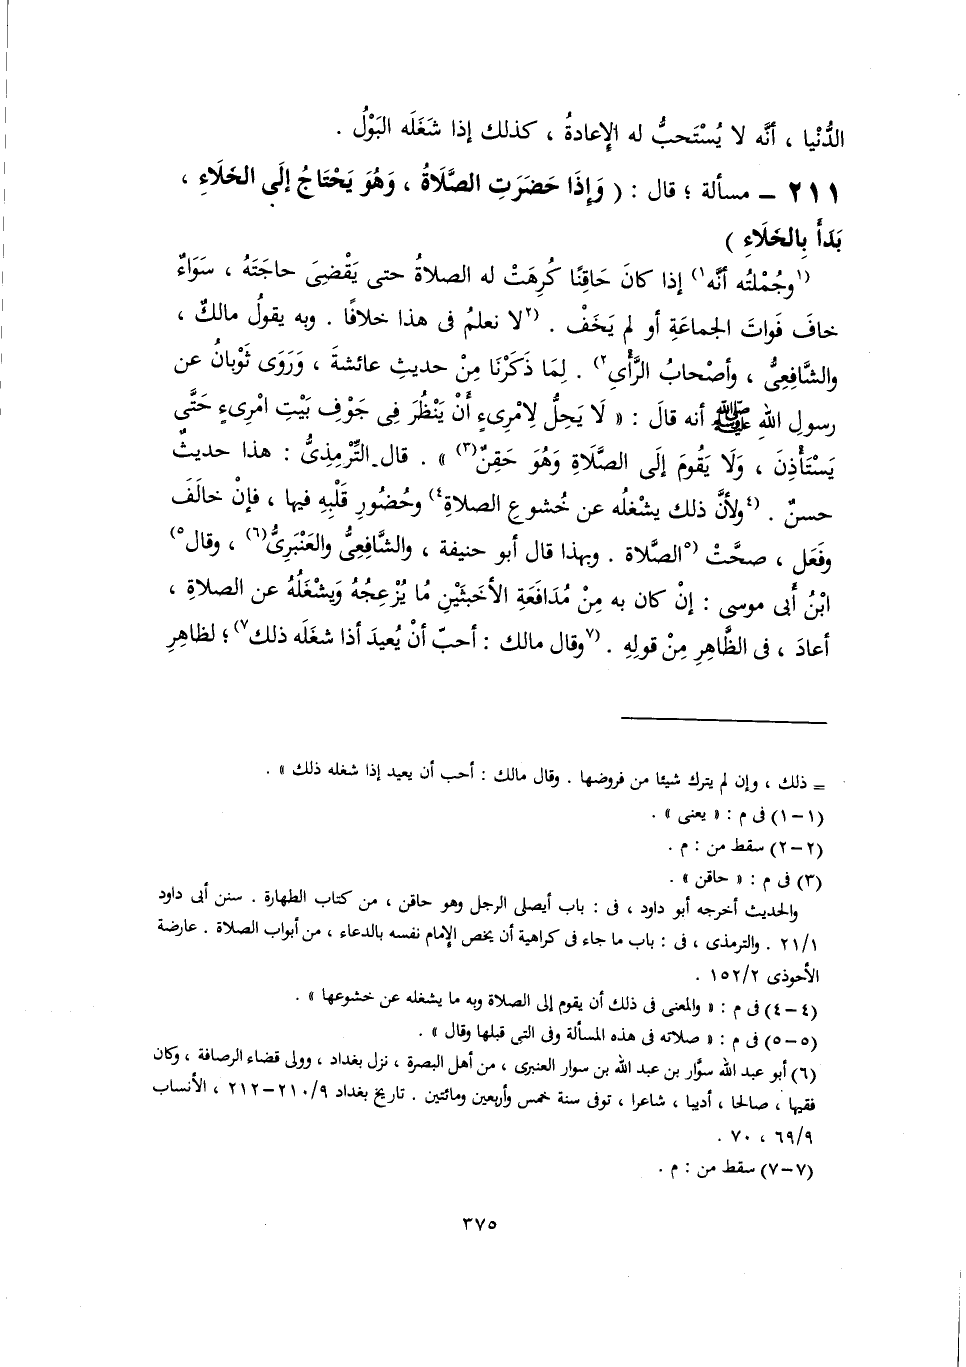 الدُّنْيا ، أنَّه لا يُسْتَحبُّ له الإِعادةُ ، كذلك إذا شَغَلَه البَوْلُ .
٢١١ – مسألة ؛ قال : ( وَإِذَا حَضَرَتِ الصَّلَاةُ ، وَهُوَ يَحْتَاجُ إلَى الخَلَاءِ ،
بَدَأَ بِالخَلَاءِ )
(١وجُمْلتُه أنَّه١) إذا كانَ حَاقِنًا كُرِهَتْ له الصلاةُ حتى يَقْضِىَ حاجَتَهُ ، سَوَاءٌ
خافَ فَواتَ الجماعَةِ أو لم يَخَفْ . (٢لا نعلمُ فى هذا خلافًا . وبه يقولُ مالكٌ ،
والشَّافِعِىُّ ، وأصْحابُ الرَّأْىِ٢) . لِمَا ذَكَرْنَا مِنْ حديثِ عائشةَ ، وَرَوَى ثَوْبانُ عن
رسولِ اللهِ ﷺ أنه قالَ : « لَا يَحِلُّ لِامْرِىءٍ أَنْ يَنْظُرَ فِى جَوْفِ بَيْتِ امْرِىءٍ حَتَّى
يَسْتَأْذِنَ ، وَلَا يَقُومَ إلَى الصَّلَاةِ وَهُوَ حَقِنٌ(٣) » . قال التِّرْمِذِىُّ : هذا حديثٌ
حسنٌ . (٤ولأنَّ ذلك يشْغلُه عن خُشوعِ الصلاةِ٤) وحُضُورِ قَلْبِهِ فيها ، فإنْ خالَفَ
وفَعَل ، صحَّتْ (٥الصَّلاة . وبهذا قال أبو حنيفة ، والشَّافِعِىُّ والعَنْبَرِىُّ(٦) ، وقال٥)
ابْنُ أَبى موسى : إنْ كان به مِنْ مُدَافَعَةِ الأخَبثَيْنِ مُا يُزْعِجُهُ وَيشْغَلُهُ عن الصلاةِ ،
أعادَ ، فى الظَّاهِرِ مِنْ قولِهِ . (٧وقال مالك : أحبّ أنْ يُعيدَ أذا شغَلَه ذلك٧) ؛ لظاهِرِ
= ذلك ، وإن لم يترك شيئا من فروضها . وقال مالك : أحب أن يعيد إذا شغله ذلك » .
(١-١) فى م : « يعنى » .
(٢-٢) سقط من : م .
(٣) فى م : « حاقن » .
والحديث أخرجه أبو داود ، فى : باب أيصلى الرجل وهو حاقن ، من كتاب الطهارة . سنن أبى داود
٢١/١ . والترمذى ، فى : باب ما جاء فى كراهية أن يخص الإمام نفسه بالدعاء ، من أبواب الصلاة . عارضة
الأحوذى ١٥٢/٢ .
(٤-٤) فى م : « والمعنى فى ذلك أن يقوم إلى الصلاة وبه ما يشغله عن خشوعها » .
(٥-٥) فى م : « صلاته فى هذه المسألة وفى التى قبلها وقال » .
(٦) أبو عبد الله سوَّار بن عبد الله بن سوار العنبرى ، من أهل البصرة ، نزل بغداد ، وولى قضاء الرصافة ، وكان
فقيها ، صالحا ، أديبا ، شاعرا ، توفى سنة خمس وأربعين ومائتين . تاريخ بغداد ٢١٠/٩–٢١٢ ، الأنساب
٦٩/٩ ، ٧٠ .
(٧-٧) سقط من : م .
٣٧٥